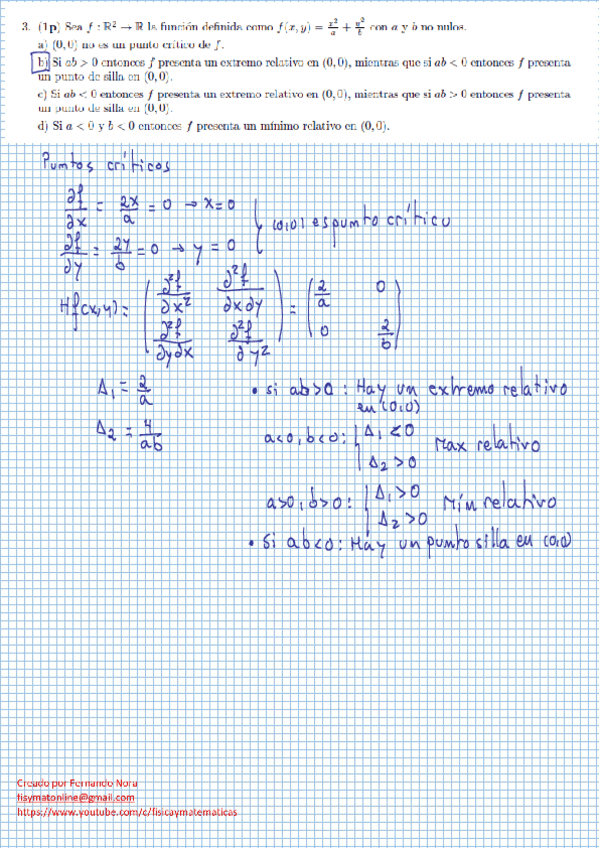 3. (1p) Sea f : R² → R la función definida como f(x, y) = x²/a + y²/b con a y b no nulos.
a) (0, 0) no es un punto crítico de f.
b) Si ab > 0 entonces f presenta un extremo relativo en (0, 0), mientras que si ab < 0 entonces f presenta
un punto de silla en (0, 0).
c) Si ab < 0 entonces f presenta un extremo relativo en (0, 0), mientras que si ab > 0 entonces f presenta
un punto de silla en (0, 0).
d) Si a < 0 y b < 0 entonces f presenta un mínimo relativo en (0, 0).
Puntos críticos
∂f/∂x = 2x/a = 0 → x=0
(0,0) es punto crítico
∂f/∂y = 2y/b = 0 → y = 0
Hf(x,y) = (∂²f/∂x² ∂²f/∂x∂y ; ∂²f/∂y∂x ∂²f/∂y²) = (2/a 0 ; 0 2/b)
Δ₁ = 2/a
Δ₂ = 4/ab
• si ab>0 : Hay un extremo relativo
en (0,0)
a<0, b<0: { Δ₁ < 0 Δ₂ > 0 Max relativo
a>0, b>0: { Δ₁ > 0 Δ₂ > 0 Mín relativo
• Si ab<0 : Hay un punto silla en (0,0)
Creado por Fernando Nora
fisymatonline@gmail.com
https://www.youtube.com/c/fisicaymatematicas